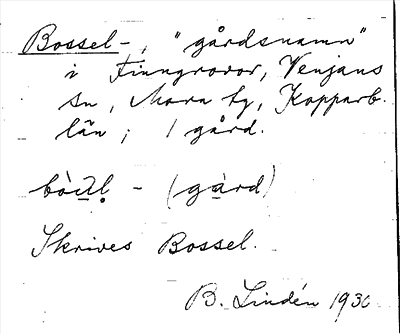 Bossel-, "gårdsnamn"
i Finngrovor, Venjans
sn, Mora tg, Kopparb.
län; 1 gård.
- (gàrd)
Skrives Bossel.
B. Lindén 1930